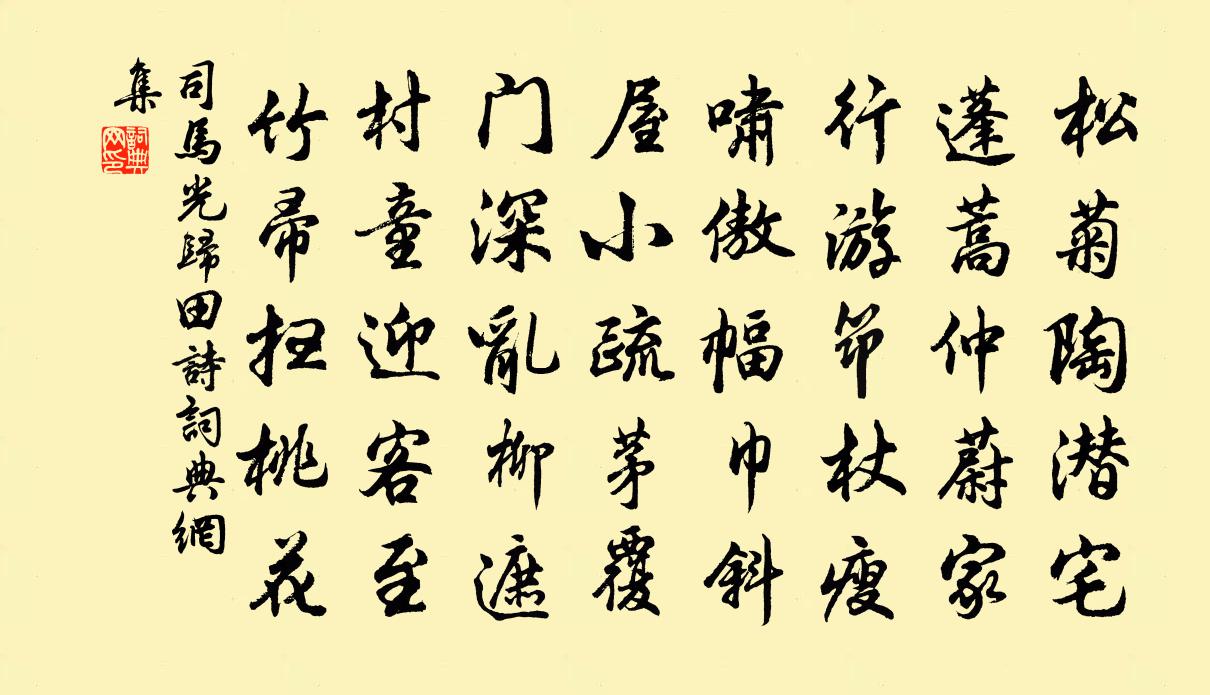 松菊陶潜宅
蓬蒿仲蔚家
行游笻杖瘦
啸傲幅巾斜
屋小疏茅覆
门深亂柳遮
村童迎客至
竹帚扫桃花
司馬光歸田詩詞典網
集
詞典
网印